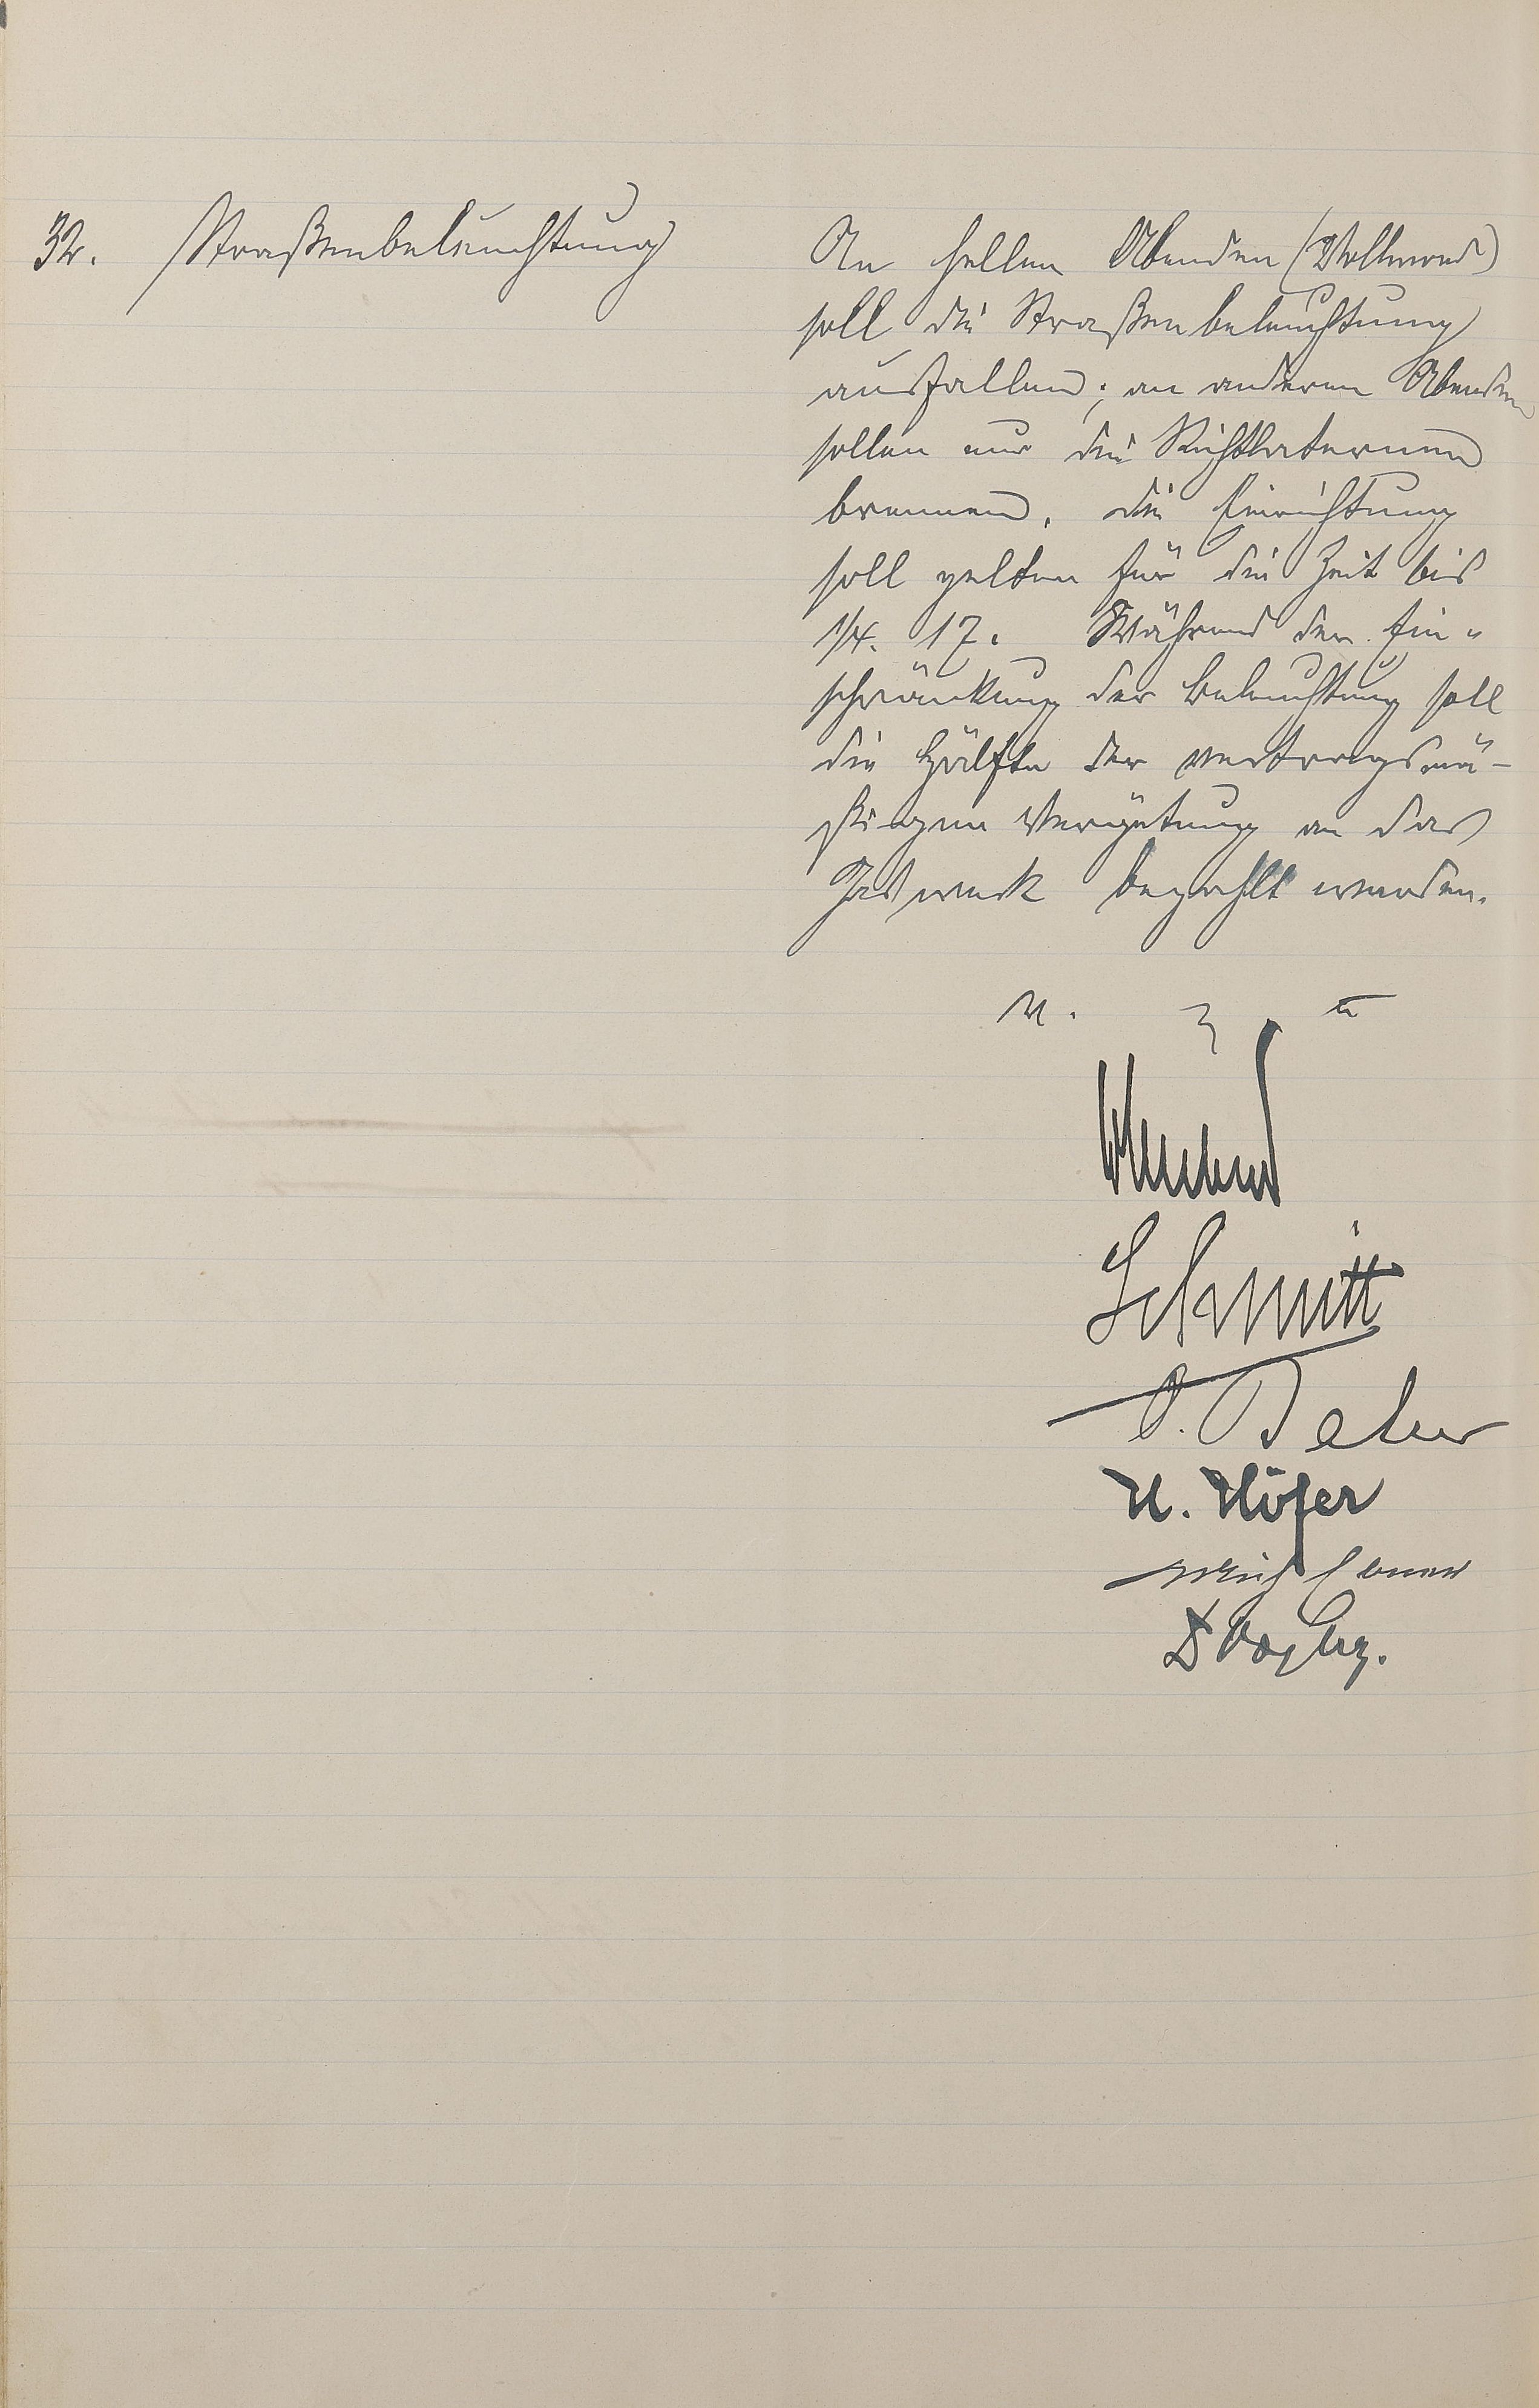 32. Straßenbeleuchtung
An hellen Abenden (Vollmond)
soll die Straßenbeleuchtung
ausfallen; an anderen Abenden
sollen nur die Richtlaternen
brennen. Die Einrichtung
soll gelten für die Zeit bis
1/4. 17. Während der Ein-
schränkung der Beleuchtung soll
die Hälfte der vertragsmä-
ßigen Vergütung an das
Gaswerk bezahlt werden.
Schmitt
H. Höfer